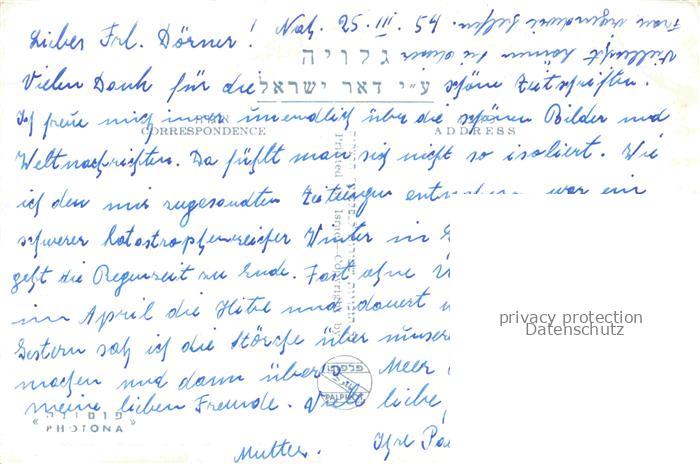 Liebes Frl. Dörner! Nah. 25. III. 54.
Vielleicht können Sie dieser
Frau irgendwie helfen.
גלויה
ע״י דאר ישראל
Vielen Dank für die schöne Zeitschriften.
Ich freue mich immer unendlich über die schönen Bilder und
CORRESPONDENCE ADDRESS
Weltnachrichten. Da fühlt man sich nicht so isoliert. Wie
ich den mir zugesandten Zeitungen war ein
schwerer katastrophenreicher Winter in
geht die Regenzeit zu Ende. Fast ohne
im April die Hitze und dauert
Gestern sah ich die Störche über unsere
machen und dann übers Meer
meine lieben Freunde. Viele liebe
Ihre
Mutter.
Printed in Israel
פלפוט
PALPHOT
«פוטונה»
PHOTONA
privacy protection
Datenschutz